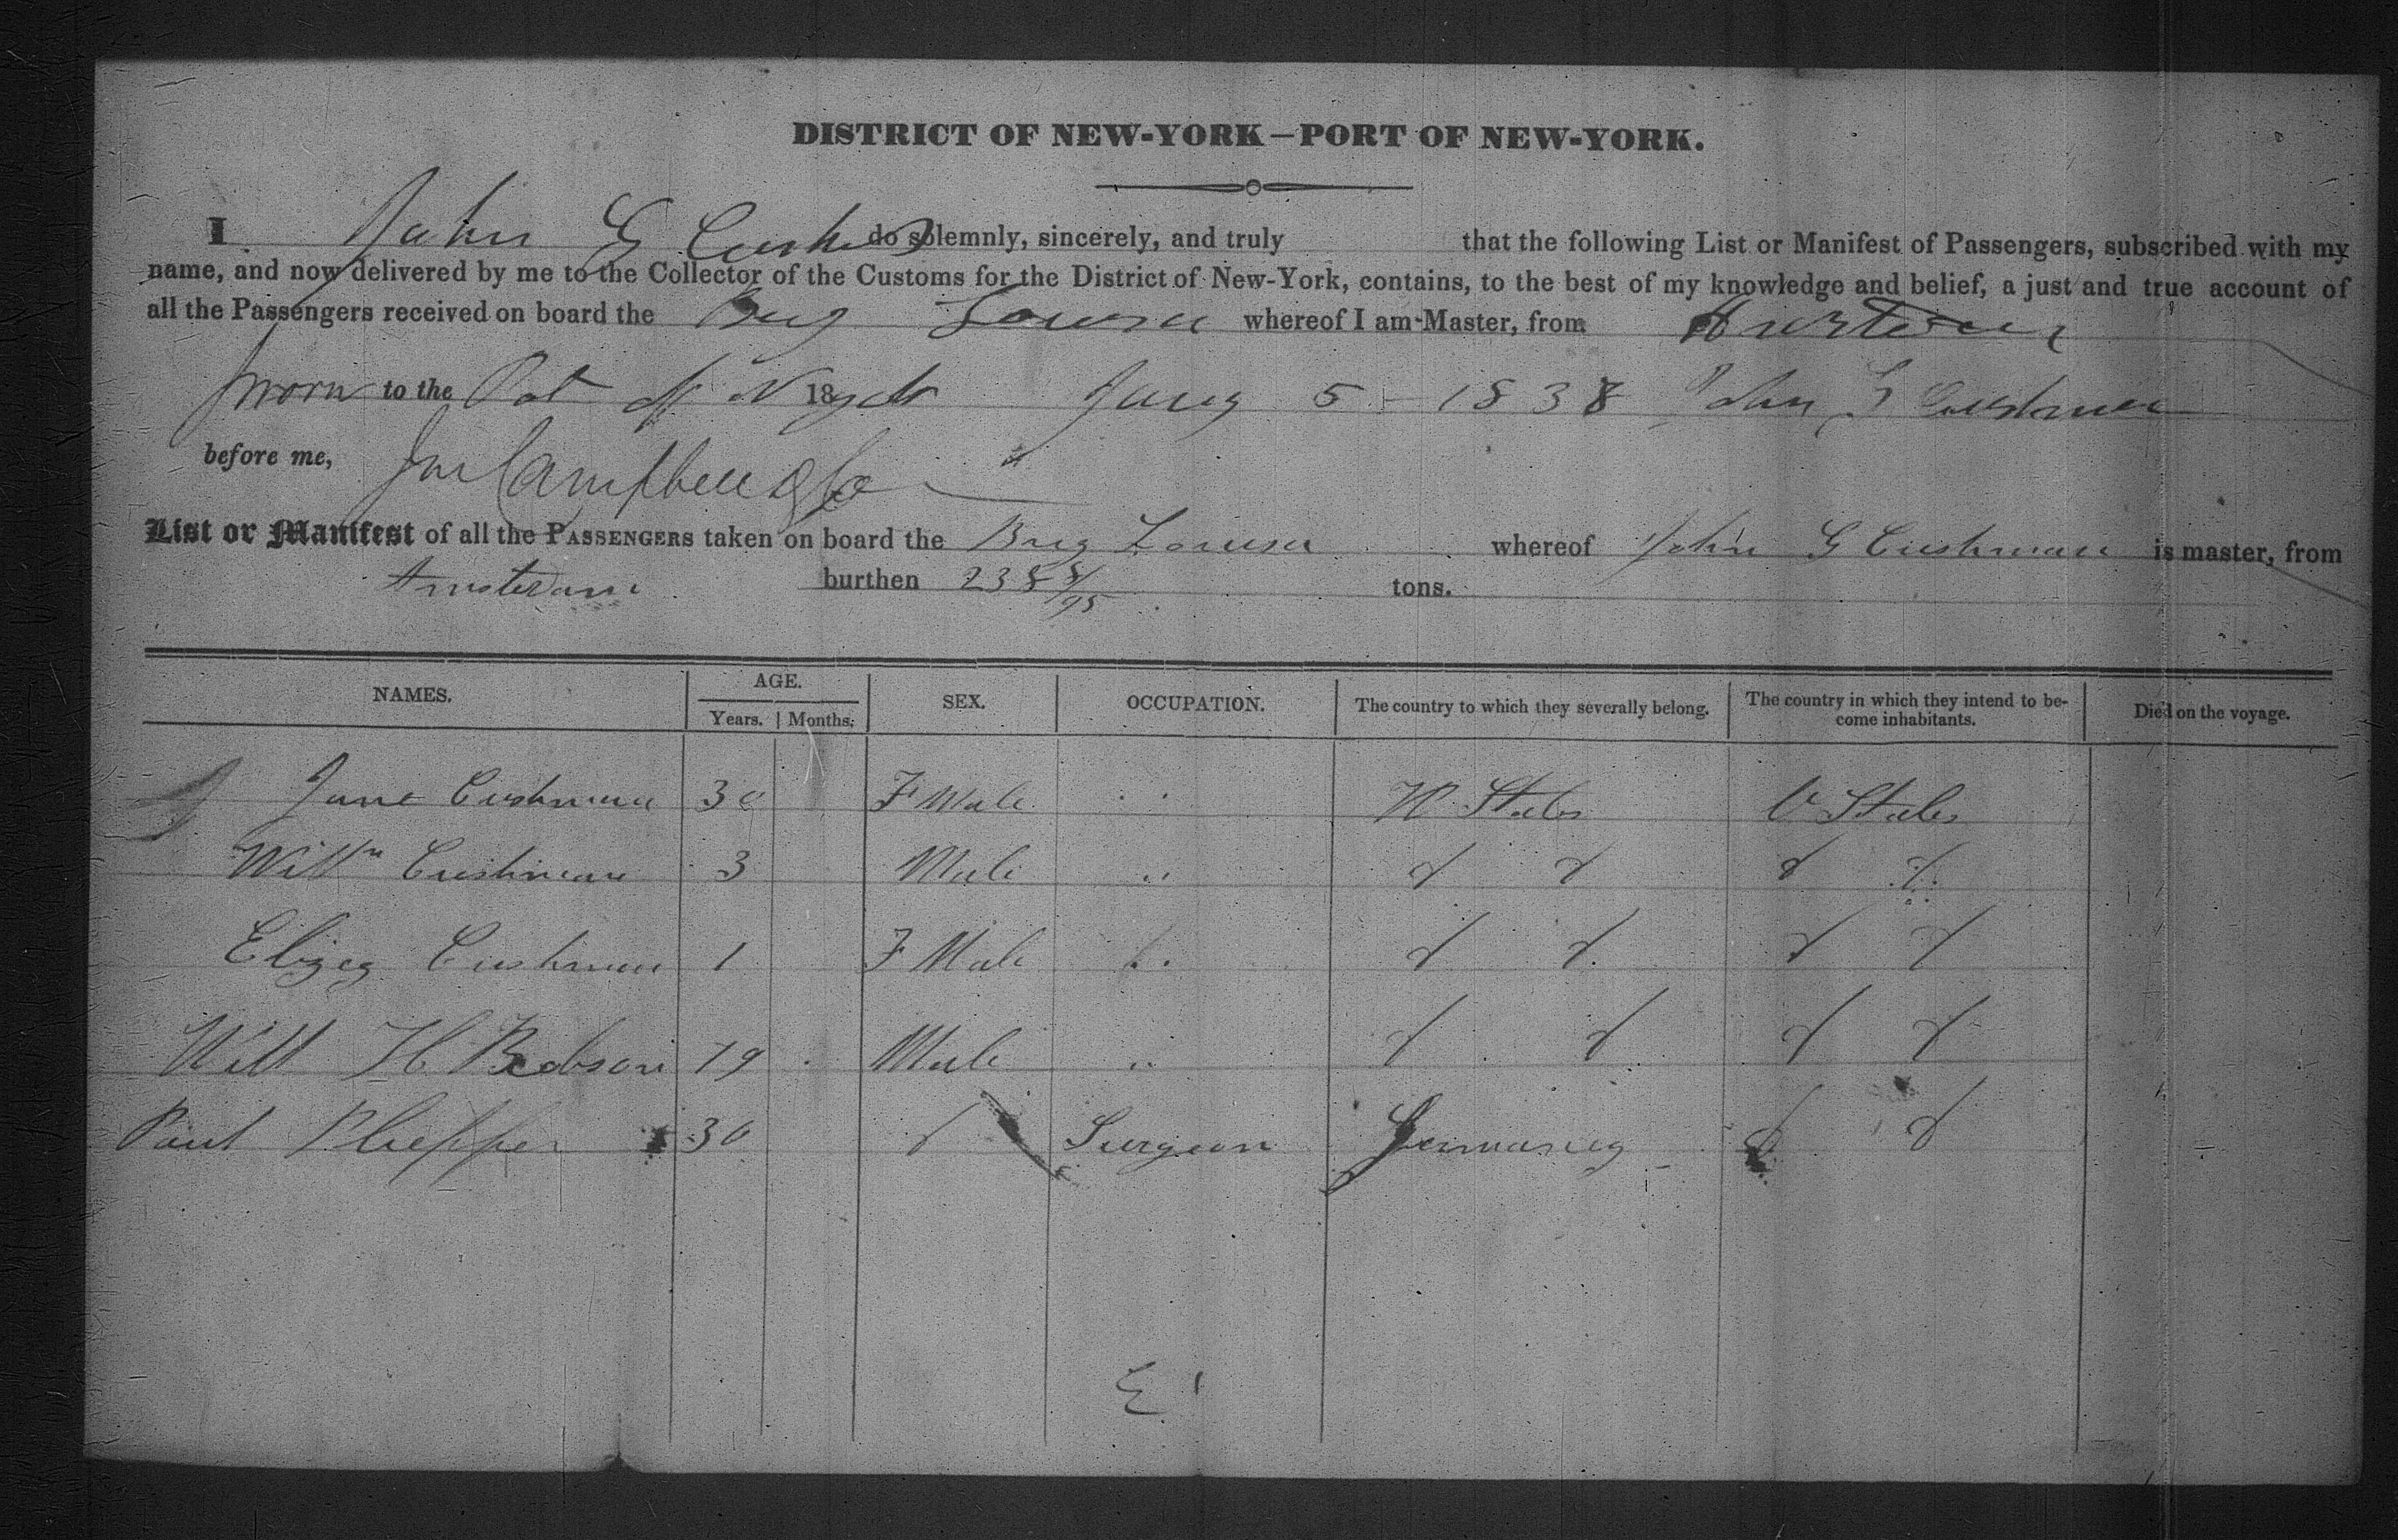 DISTRICT OF NEW-YORK—PORT OF NEW-YORK.
I John G Cushman do solemnly, sincerely, and truly that the following List or Manifest of Passengers, subscribed with my
name, and now delivered by me to the Collector of the Customs for the District of New-York, contains, to the best of my knowledge and belief, a just and true account of
all the Passengers received on board the Brig Louisa whereof I am Master, from Amsterdam
Sworn to the Port of N York 18 Jany 5 - 1838 John G Cushman
before me, Campbell
List or Manifest of all the PASSENGERS taken on board the Brig Louisa whereof John G Cushman is master, from
Amsterdam burthen 238 8/95 tons.
NAMES. AGE. SEX. OCCUPATION. The country to which they severally belong. The country in which they intend to be- Died on the voyage.
Years. Months. come inhabitants.
Jane Cushman 30 F Male " U States U States
Willm Cushman 3 Male "
Elizey Cushman 1 F Male "
Will H 19 Male "
Paul 30 Surgeon Germaney